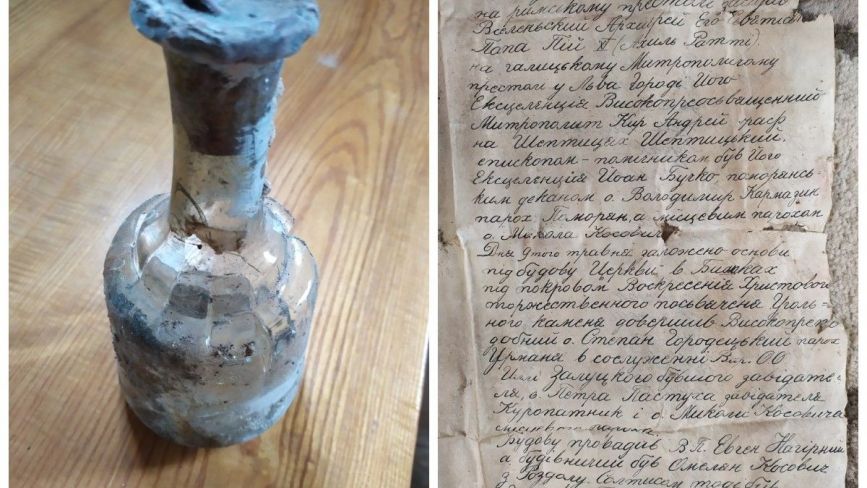 на римському престолі засідав
Вселенський Архиєрей Его Святість
Папа Пій XI (Ахиль Ратті),
на галицькому Митрополичому
престолі у Льва Городі Його
Ексцеленція Високопреосвященний
Митрополит Кир Андрей граф
на Шептицях Шептицький,
єпископом-помічником був Його
Ексцеленція Йоан Бучко, поморянсь-
ким деканом о. Володимир Кармазин
парох Поморян, а місцевим парохом
о. Микола Косович.
Дня 9того травня заложено основи
під будову Церкви в Бижках
під покровом Воскресенія Христового
торжественного посвячена Уголь-
ного каменя довершив Високопрепо
добний о. Степан Городецький парох
Урманя в сослуженні Впр. ОО
Залуцкого бувшого завідате-
ля, о. Петра Пастуха завідателя
Куропатник і о. Миколи Косовича
місцевого пароха.
Будову провадив В.П. Евген Нагірний
а будівничий був Омелян Косович
з Роздолу. Солтисом тоді був